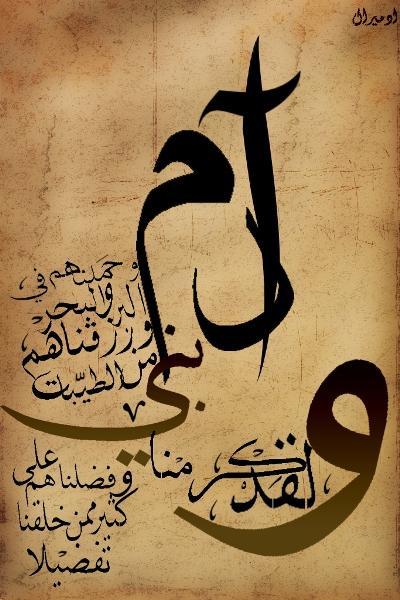 ادميرال
ولقد كرمنا
بني
آدم
وحملناهم في
البر والبحر
ورزقناهم
من الطيبت
وفضلناهم على
كثير ممن خلقنا
تفضيلا